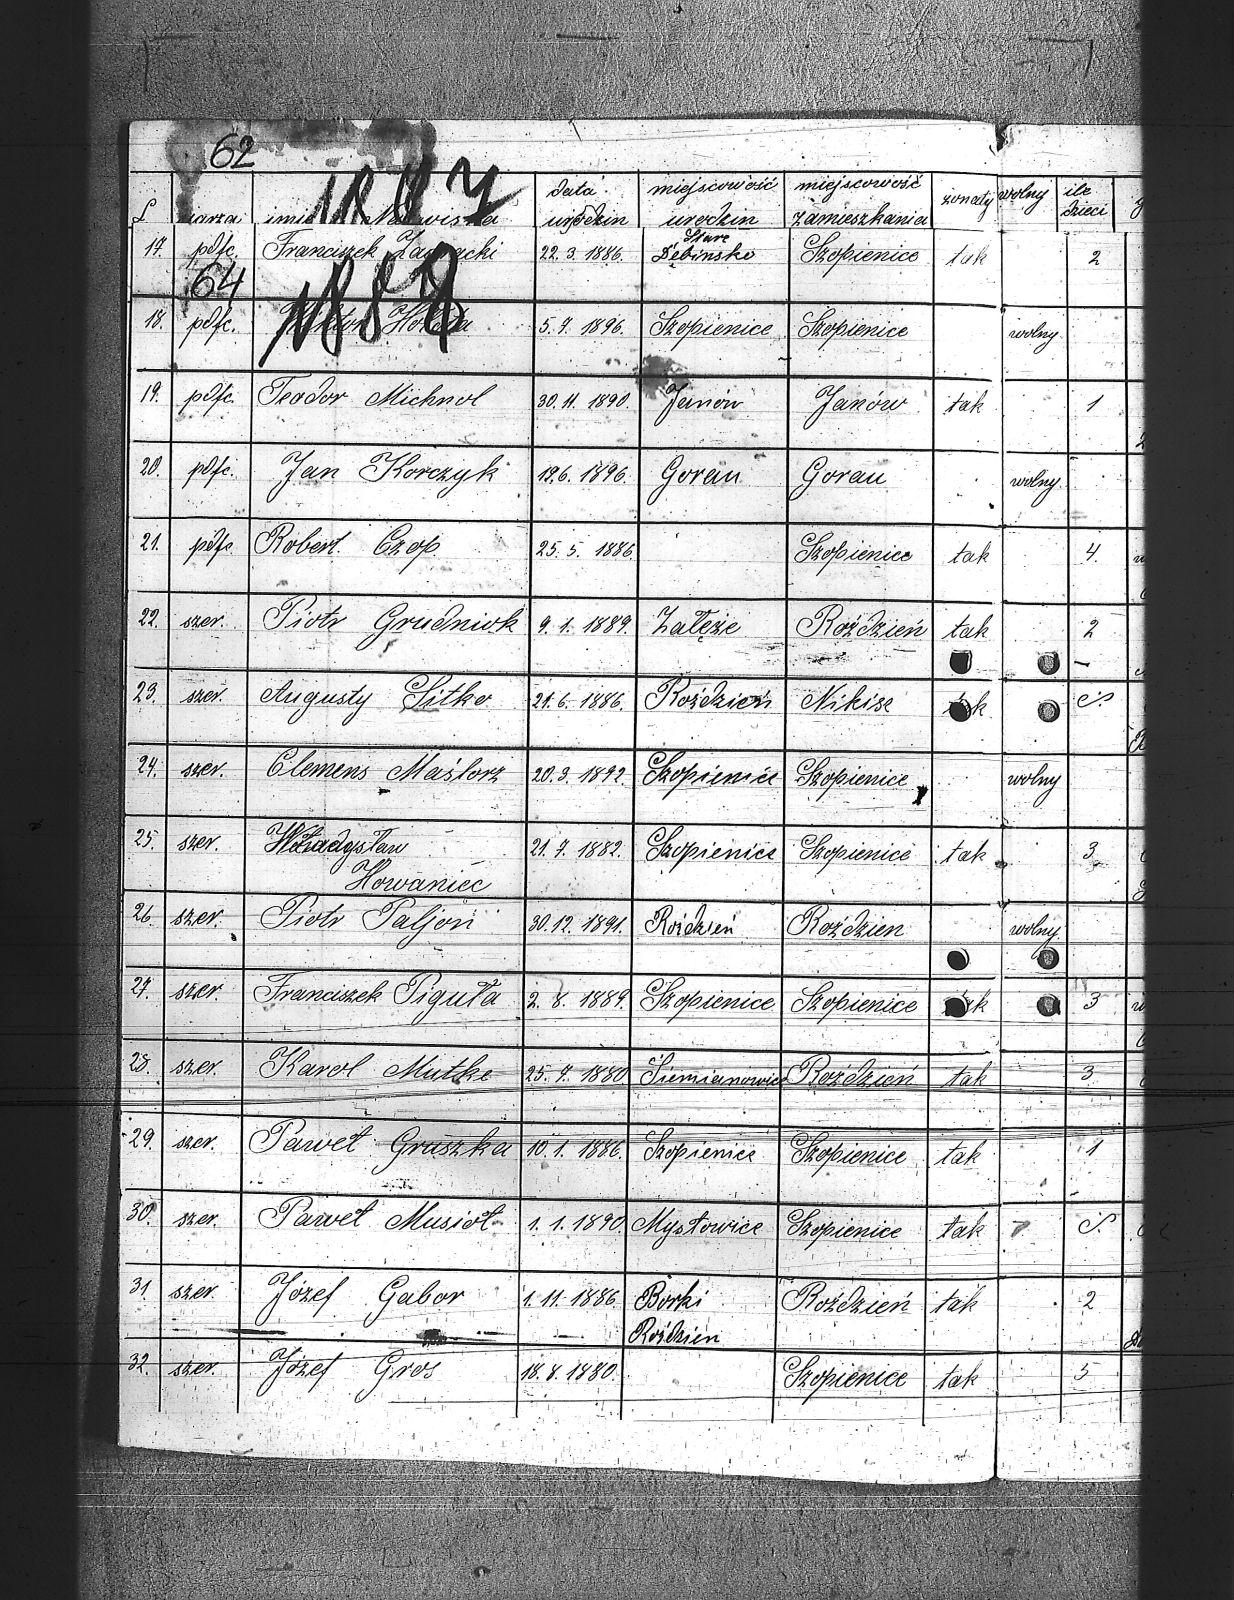 62
1887
data miejscowość miejscowość wolny ile
L imię Nazwiska urodzin urodzin zamieszkania żonaty dzieci
Stare
17. pdfc. Franciszek 22. 3. 1886. Dębinsko Szopienice tak 2
64 1888
18. pdfc. 5. 7. 1896. Szopienice Szopienice wolny
19. pdfc. Teodor Michnol 30. 11. 1890. Janów Janów tak 1
20. pdfc. Jan Korczyk 19. 6. 1896. Gorau Gorau wolny.
21. pdfc Robert Czop 25. 5. 1886. Szopienice tak 4.
22. szer. Piotr Grudniok 9. 1. 1889. Załęże Roździeń tak 2
23. szer. Augusty Sitko 21. 6. 1886. Roździeń Nikisz
24. szer. Clemens Maślorz 20. 3. 1892. Szopienice Szopienice wolny
25. szer. Władysław 21. 7. 1882. Szopienice Szopienice tak 3
Howaniec
26 szer. Piotr Paljon 30. 12. 1891. Roździeń Roździen wolny.
27. szer. Franciszek Piguła 2. 8. 1889. Szopienice Szopienice 3
28. szer. Karol Mutke 25. 7. 1880 Siemianowice Roździeń tak 3
29. szer. Paweł Gruszka 10. 1. 1886. Szopienice Szopienice tak 1
30. szer. Paweł Musioł 1. 1. 1890 Mysłowice Szopienice tak
31. szer. Józef Gabor 1. 11. 1886. Borki Roździeń tak 2
Roździen
32. szer. Józef Gros 18. 8. 1880. Szopienice tak 5